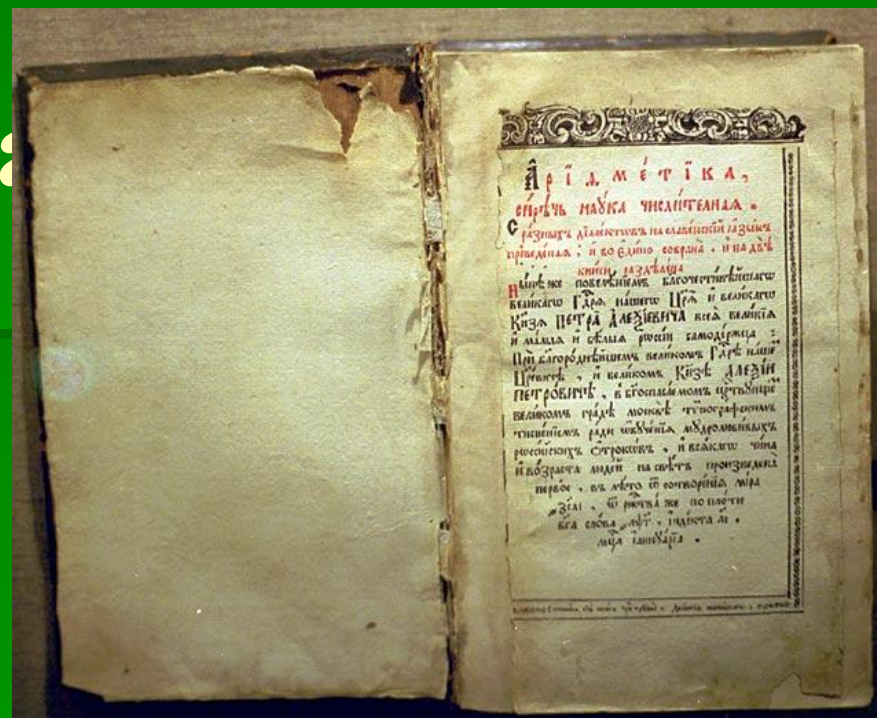 Арїѳмéтїка,
сирѣчь наýка числителная.
С разныхъ дїалектовъ на славенскїй ꙗзыкъ
преведеная, и во едино собрана, и на двѣ
книги раздѣлена
Нынѣ же повелѣнїемъ благочестивѣйшагѡ
великагѡ Гдⷭ҇рѧ нашегѡ Црѧ̀ и великагѡ
Кнзѧ ПЕТРА̀ АЛЕѮІЕВИЧА всеѧ̀ великїѧ
и малыѧ и бѣлыѧ рѡссїи самодержца:
При благороднѣйшемъ великомъ Гдⷭ҇рѣ наше
Црⷭ҇евичѣ, и великомъ Кнзѣ АЛЕѮІИ
ПЕТРОВИЧѢ, в бгоспасаемомъ црⷭ҇твующе
великомъ градѣ москвѣ тѵпографскимъ
тисненїемъ ради ѡбученїѧ мудролюбивыхъ
рѡссїйскихъ Отрокѡвъ, и всѧкагѡ чина
и возраста людей на свѣтъ произведена
первое, въ лѣто ѿ сотворенїѧ мїра
҂зсаі, ѿ ржⷭ҇тва же по плоти
бга слова ҂аѱг, індїкта аі.
мцⷭ҇а їаннуарїа.